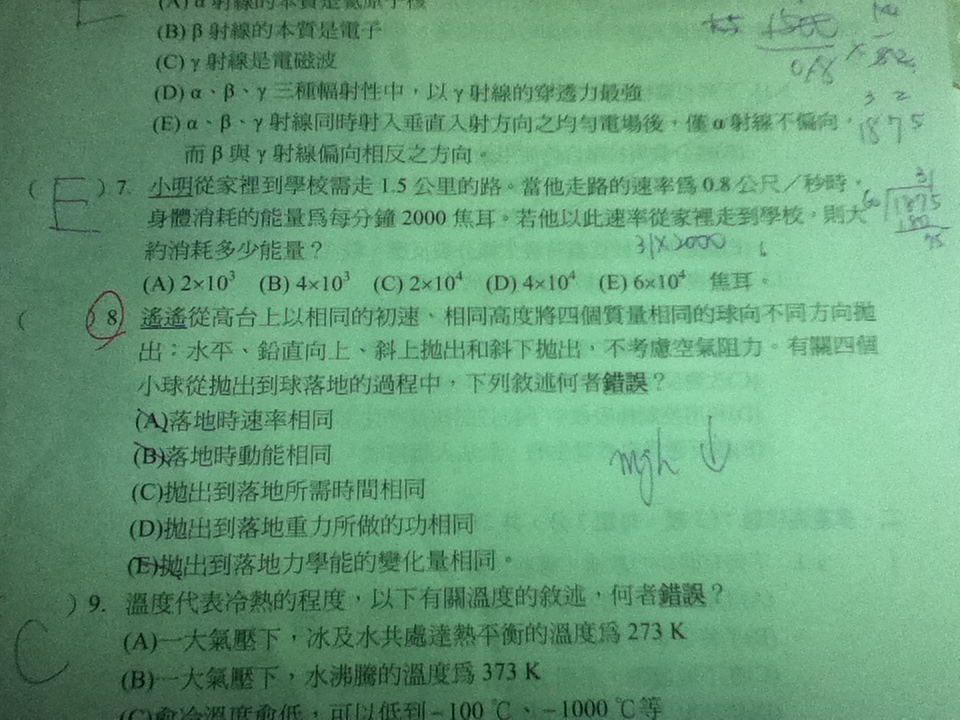 (A) α 射線的本質是氦原子核
(B) β 射線的本質是電子
(C) γ 射線是電磁波
(D) α、β、γ 三種輻射性中，以 γ 射線的穿透力最強
(E) α、β、γ 射線同時射入垂直入射方向之均勻電場後，僅 α 射線不偏向，
而 β 與 γ 射線偏向相反之方向。
( E ) 7. 小明從家裡到學校需走 1.5 公里的路。當他走路的速率為 0.8 公尺／秒時，
身體消耗的能量為每分鐘 2000 焦耳。若他以此速率從家裡走到學校，則大
約消耗多少能量？
31×2000
(A) 2×10³ (B) 4×10³ (C) 2×10⁴ (D) 4×10⁴ (E) 6×10⁴ 焦耳。
( ) 8 遙遙從高台上以相同的初速、相同高度將四個質量相同的球向不同方向拋
出：水平、鉛直向上、斜上拋出和斜下拋出，不考慮空氣阻力。有關四個
小球從拋出到球落地的過程中，下列敘述何者錯誤？
(A)落地時速率相同
(B)落地時動能相同
mgh ↓
(C)拋出到落地所需時間相同
(D)拋出到落地重力所做的功相同
(E)拋出到落地力學能的變化量相同。
) 9. 溫度代表冷熱的程度，以下有關溫度的敘述，何者錯誤？
C
(A)一大氣壓下，冰及水共處達熱平衡的溫度為 273 K
(B)一大氣壓下，水沸騰的溫度為 373 K
(C)愈冷溫度愈低，可以低到 −100 ℃、−1000 ℃等